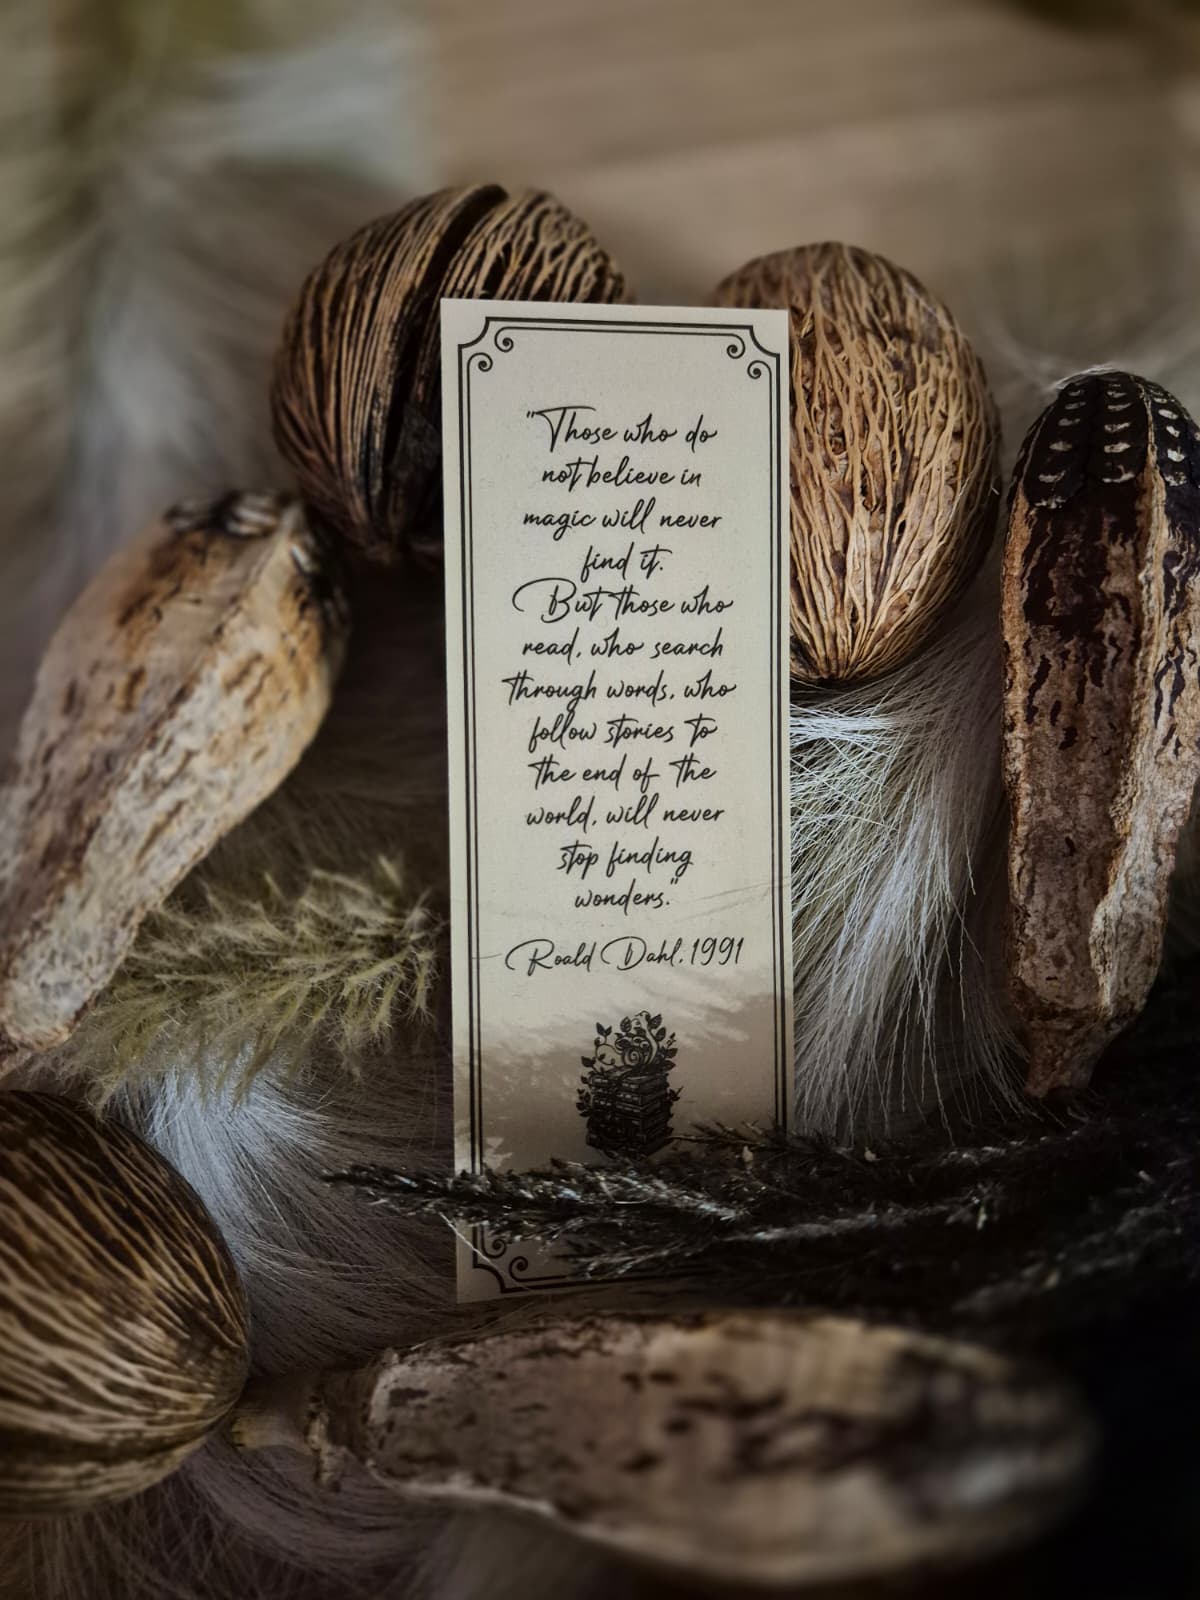 "Those who do
not believe in
magic will never
find it.
But those who
read, who search
through words, who
follow stories to
the end of the
world, will never
stop finding
wonders."
Roald Dahl, 1991